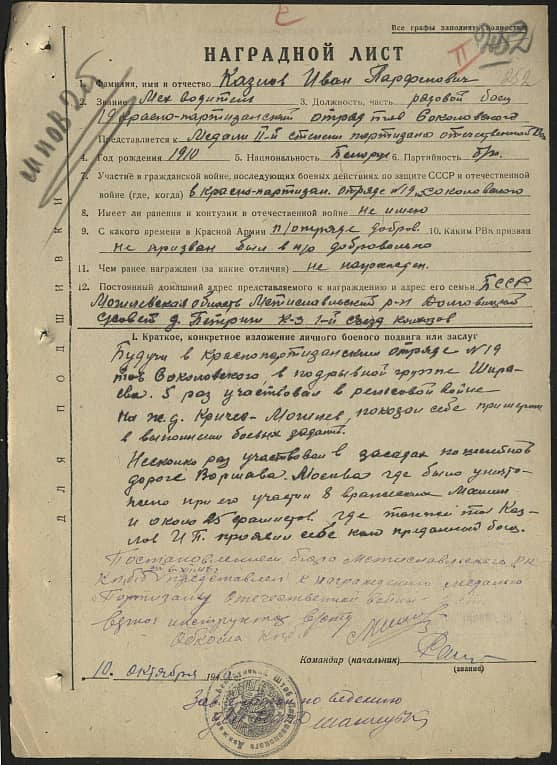 Все графы заполнять полностью
НАГРАДНОЙ ЛИСТ
1. Фамилия, имя и отчество Казлов Иван Парфенович
2. Звание Мех водитель 3. Должность, часть рядовой боец
19 красно-партизанский отряд тов Соколовского
Представляется к Медали II-й степени партизана отечественной
4. Год рождения 1910 5. Национальность Белорус 6. Партийность б/п.
7. Участие в гражданской войне, последующих боевых действиях по защите СССР и отечественной
войне (где, когда) в красно-партизан. отряде №19 Соколовского
8. Имеет ли ранения и контузии в отечественной войне не имею
9. С какого времени в Красной Армии п/отряде добров. 10. Каким РВК призван
не призван был в п/о добровольно
11. Чем ранее награжден (за какие отличия) не награжден.
12. Постоянный домашний адрес представляемого к награждению и адрес его семьи БССР
Могилевская область Мстиславльский р-н Долговицкий
с/совет д. Петрыги к-з 1-й съезд колхозов
I. Краткое, конкретное изложение личного боевого подвига или заслуг
Будучи в Краснопартизанском отряде №19
тов Соколовского, в подрывной группе
5 раз участвовал в рельсовой войне
на ж.д. Кричев-Могилев, показал себе примером
в выполнении боевых задач.
Несколько раз участвовал в засадах
дороге Воршава. Москва где было уничто-
жено при его участии 8 вражеских машин
и около 25 фашистов. где тов Каз-
лов И.П. проявил себе как преданной боец.
Постановлением бюро Мстиславльского РК
КП(б)Б представлен к награждению медалью
Партизану Отечественной войны
Обкома
Командир (начальник)
(звание)
10. октября 194
ДЛЯ ПОДШИВКИ